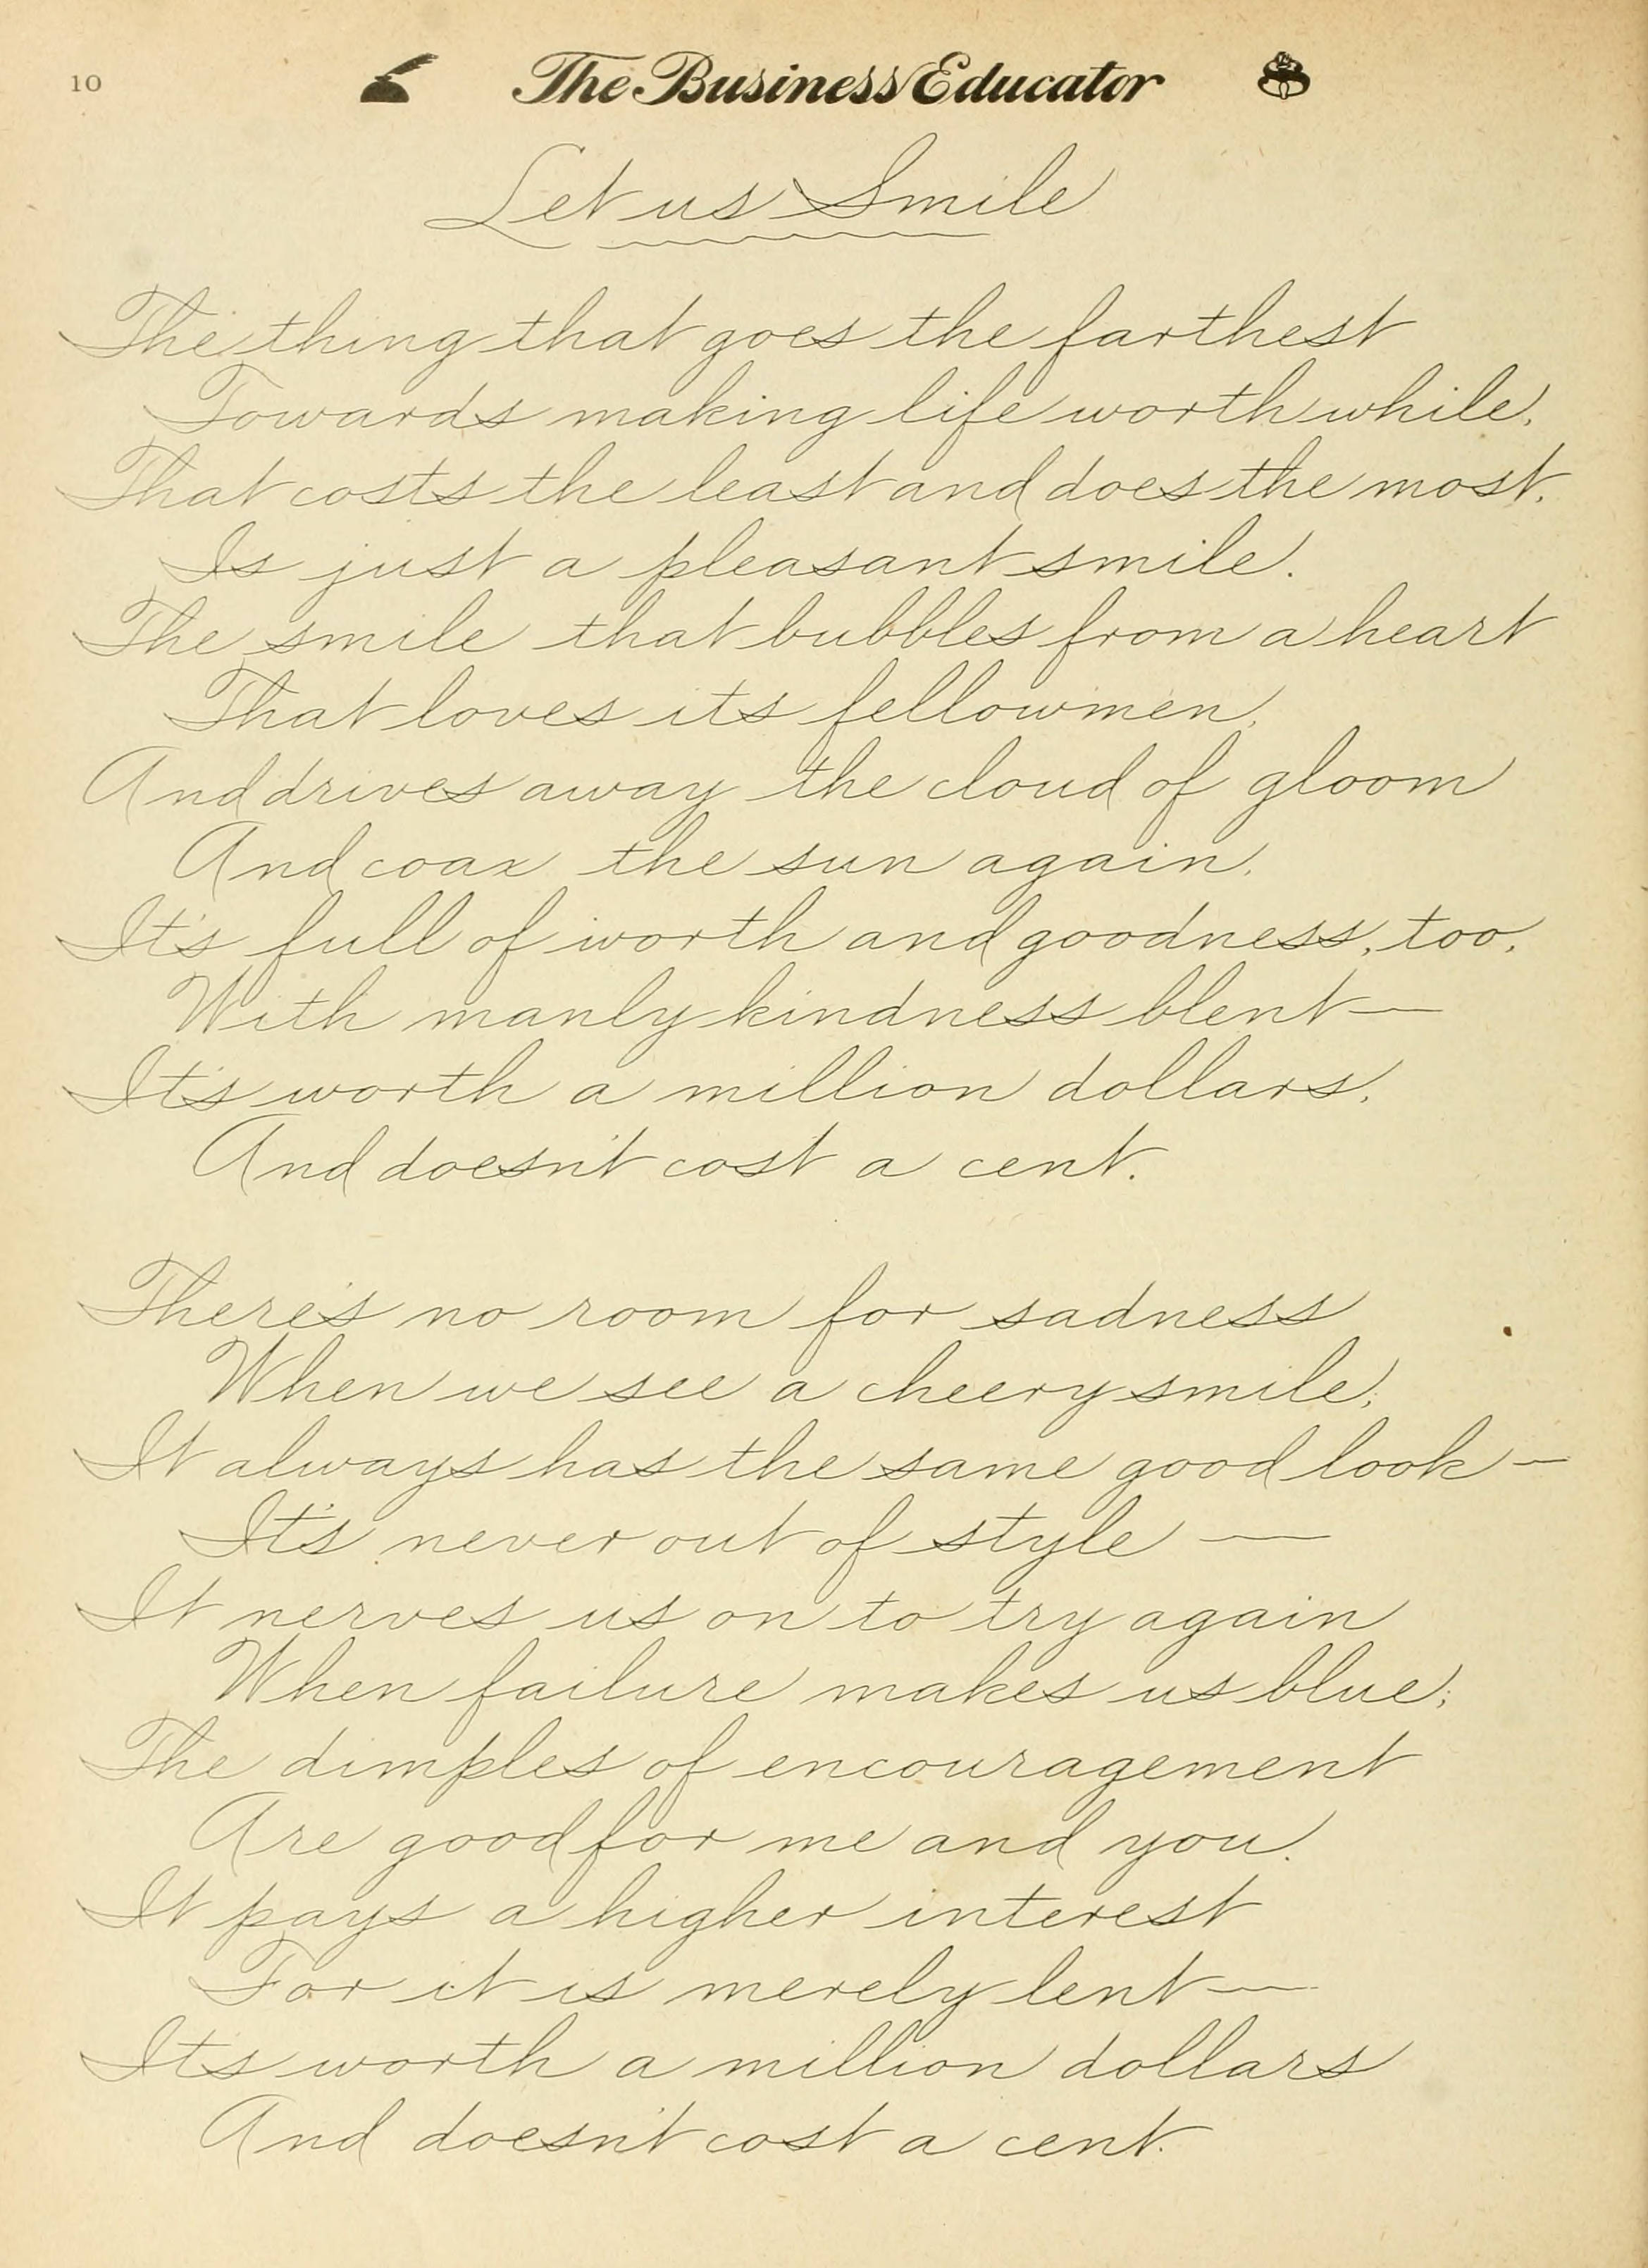 10
The Business Educator
Let us Smile
The thing that goes the farthest
Towards making life worth while,
That costs the least and does the most,
Is just a pleasant smile.
The smile that bubbles from a heart
That loves its fellowmen,
And drives away the cloud of gloom
And coax the sun again,
It's full of worth and goodness, too,
With manly kindness blent—
It's worth a million dollars,
And doesn't cost a cent.
There's no room for sadness
When we see a cheery smile;
It always has the same good look—
It's never out of style—
It nerves us on to try again
When failure makes us blue;
The dimples of encouragement
Are good for me and you.
It pays a higher interest
For it is merely lent—
It's worth a million dollars
And doesn't cost a cent.